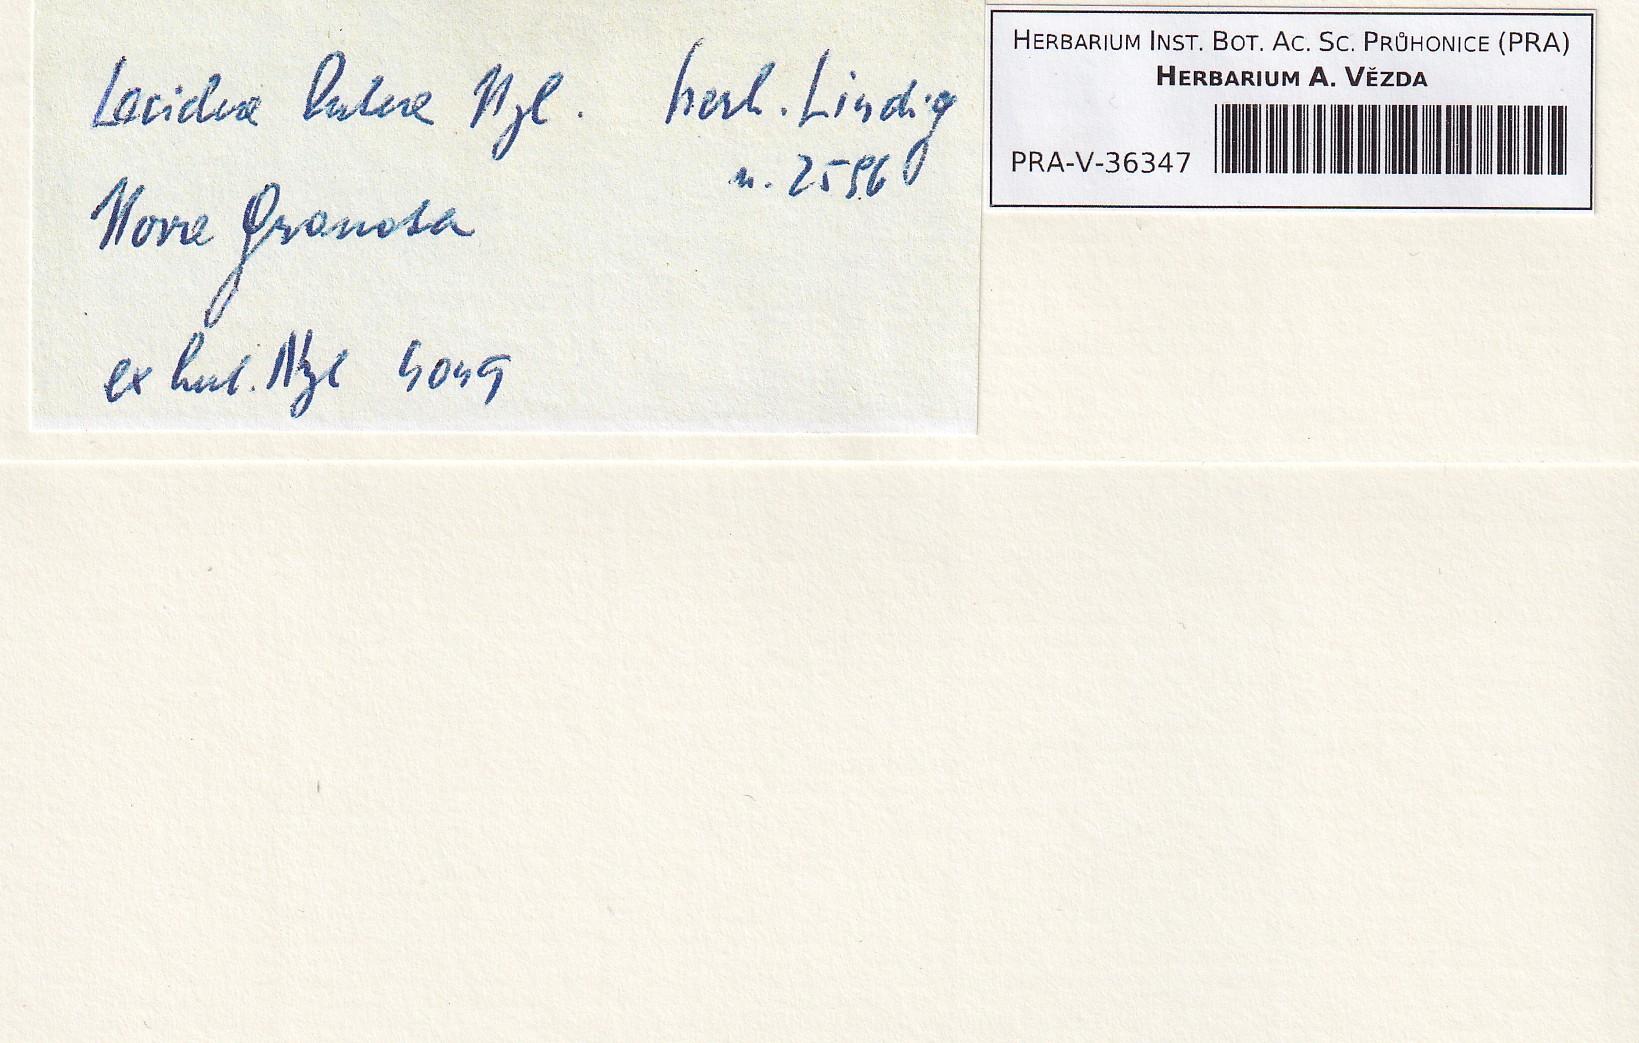 Lecidea lutea Nyl. herb. Lindig
n. 2596
Nova Granata
ex hb. Nyl
HERBARIUM INST. BOT. AC. SC. PRŮHONICE (PRA)
HERBARIUM A. VĚZDA
PRA-V-36347